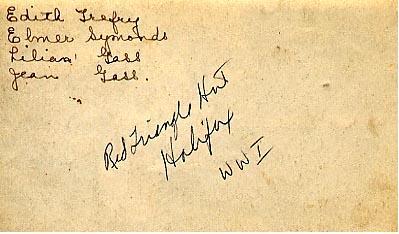 Edith Trefry
Elmer Symonds
Lilian Gass
Jean Gass.
Red Triangle Hut
Halifax
WW I